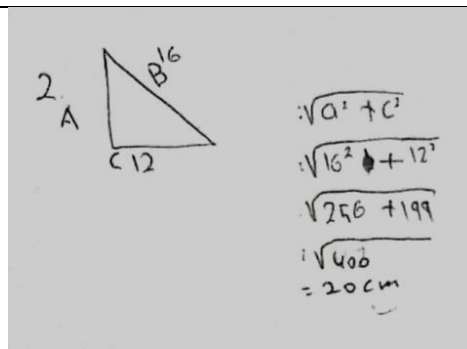 2.
A
B 16
C 12
: √a² + c²
: √16² + 12²
: √256 + 144
: √400
= 20 cm